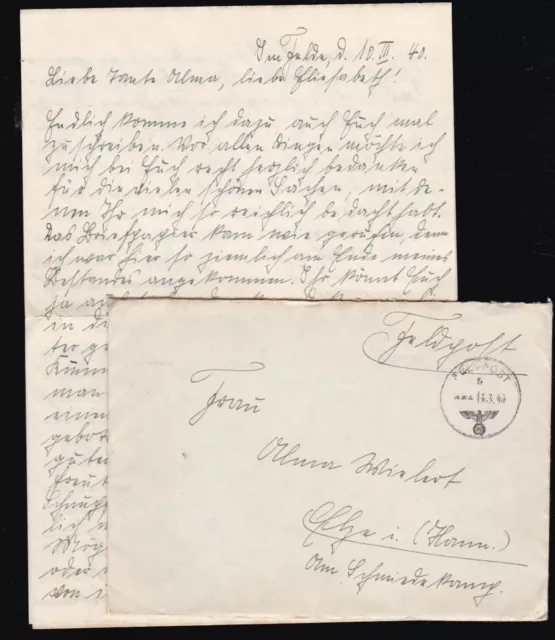 Im Felde, d. 10. III. 40.
Liebe Tante Alma, liebe Elisabeth!
Endlich komme ich dazu, auch Euch mal
zu schreiben. Vor allen Dingen möchte ich
mich bei Euch recht herzlich bedanken
für die vielen schönen Sachen, mit de-
nen Ihr mich so reichlich bedacht habt.
Das Briefpapier kam wie gerufen, denn
ich war hier so ziemlich am Ende meines
Bestandes angekommen. Ihr könnt Euch
ja
in
ter
man
einen
gebot
guten
lich
oder
von
Feldpost
FELDPOST
b
13.3.40
Frau
Alma Wielert
Elze i. (Hann.)
Am Schmiedekamp.